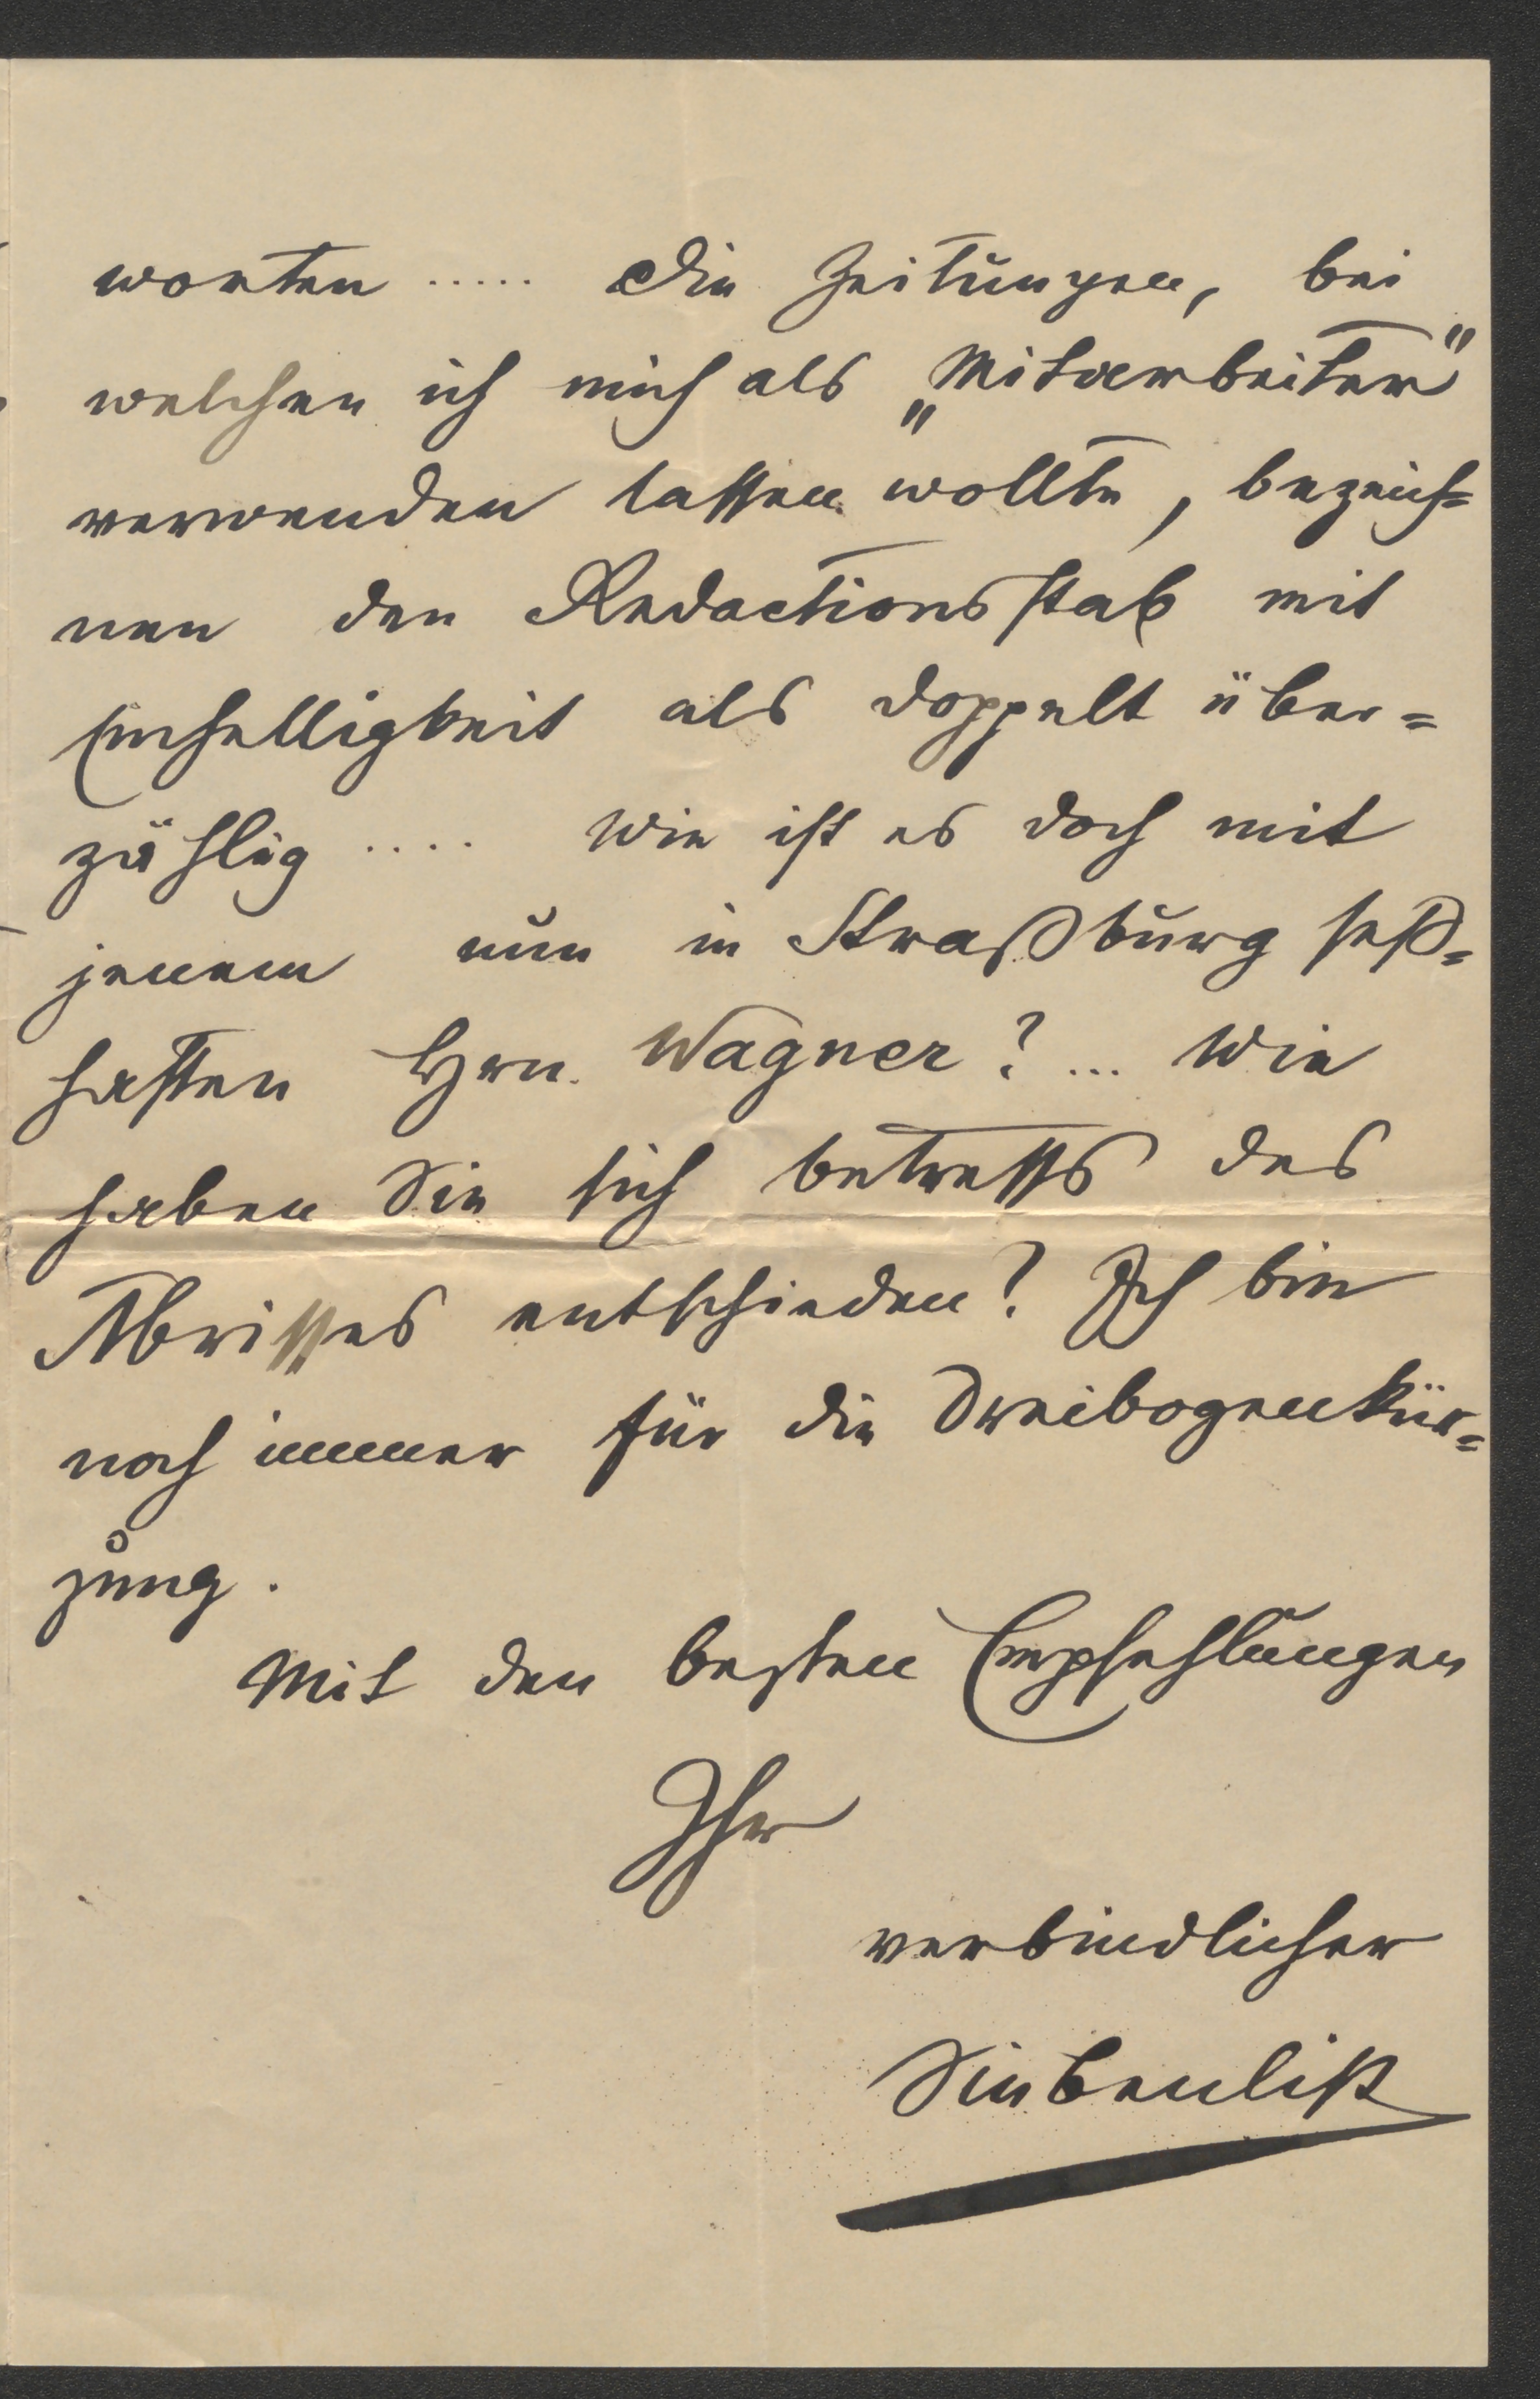 worten ..... Die Zeitungen, bei
welchen ich mich als „Mitarbeiter"
verwenden lassen wollte, bezeich=
nen den Redactionsstab mit
Einhelligkeit als doppelt über=
zählig .... Wie ist es doch mit
jenem nun in Straßburg seß=
haften Hrn. Wagner? ... Wie
haben Sie sich betreffs des
Abrisses entschieden? Ich bin
noch immer für die Dreibogenkür=
zung.
Mit den besten Empfehlungen
Ihr
verbindlicher
Siebenlist